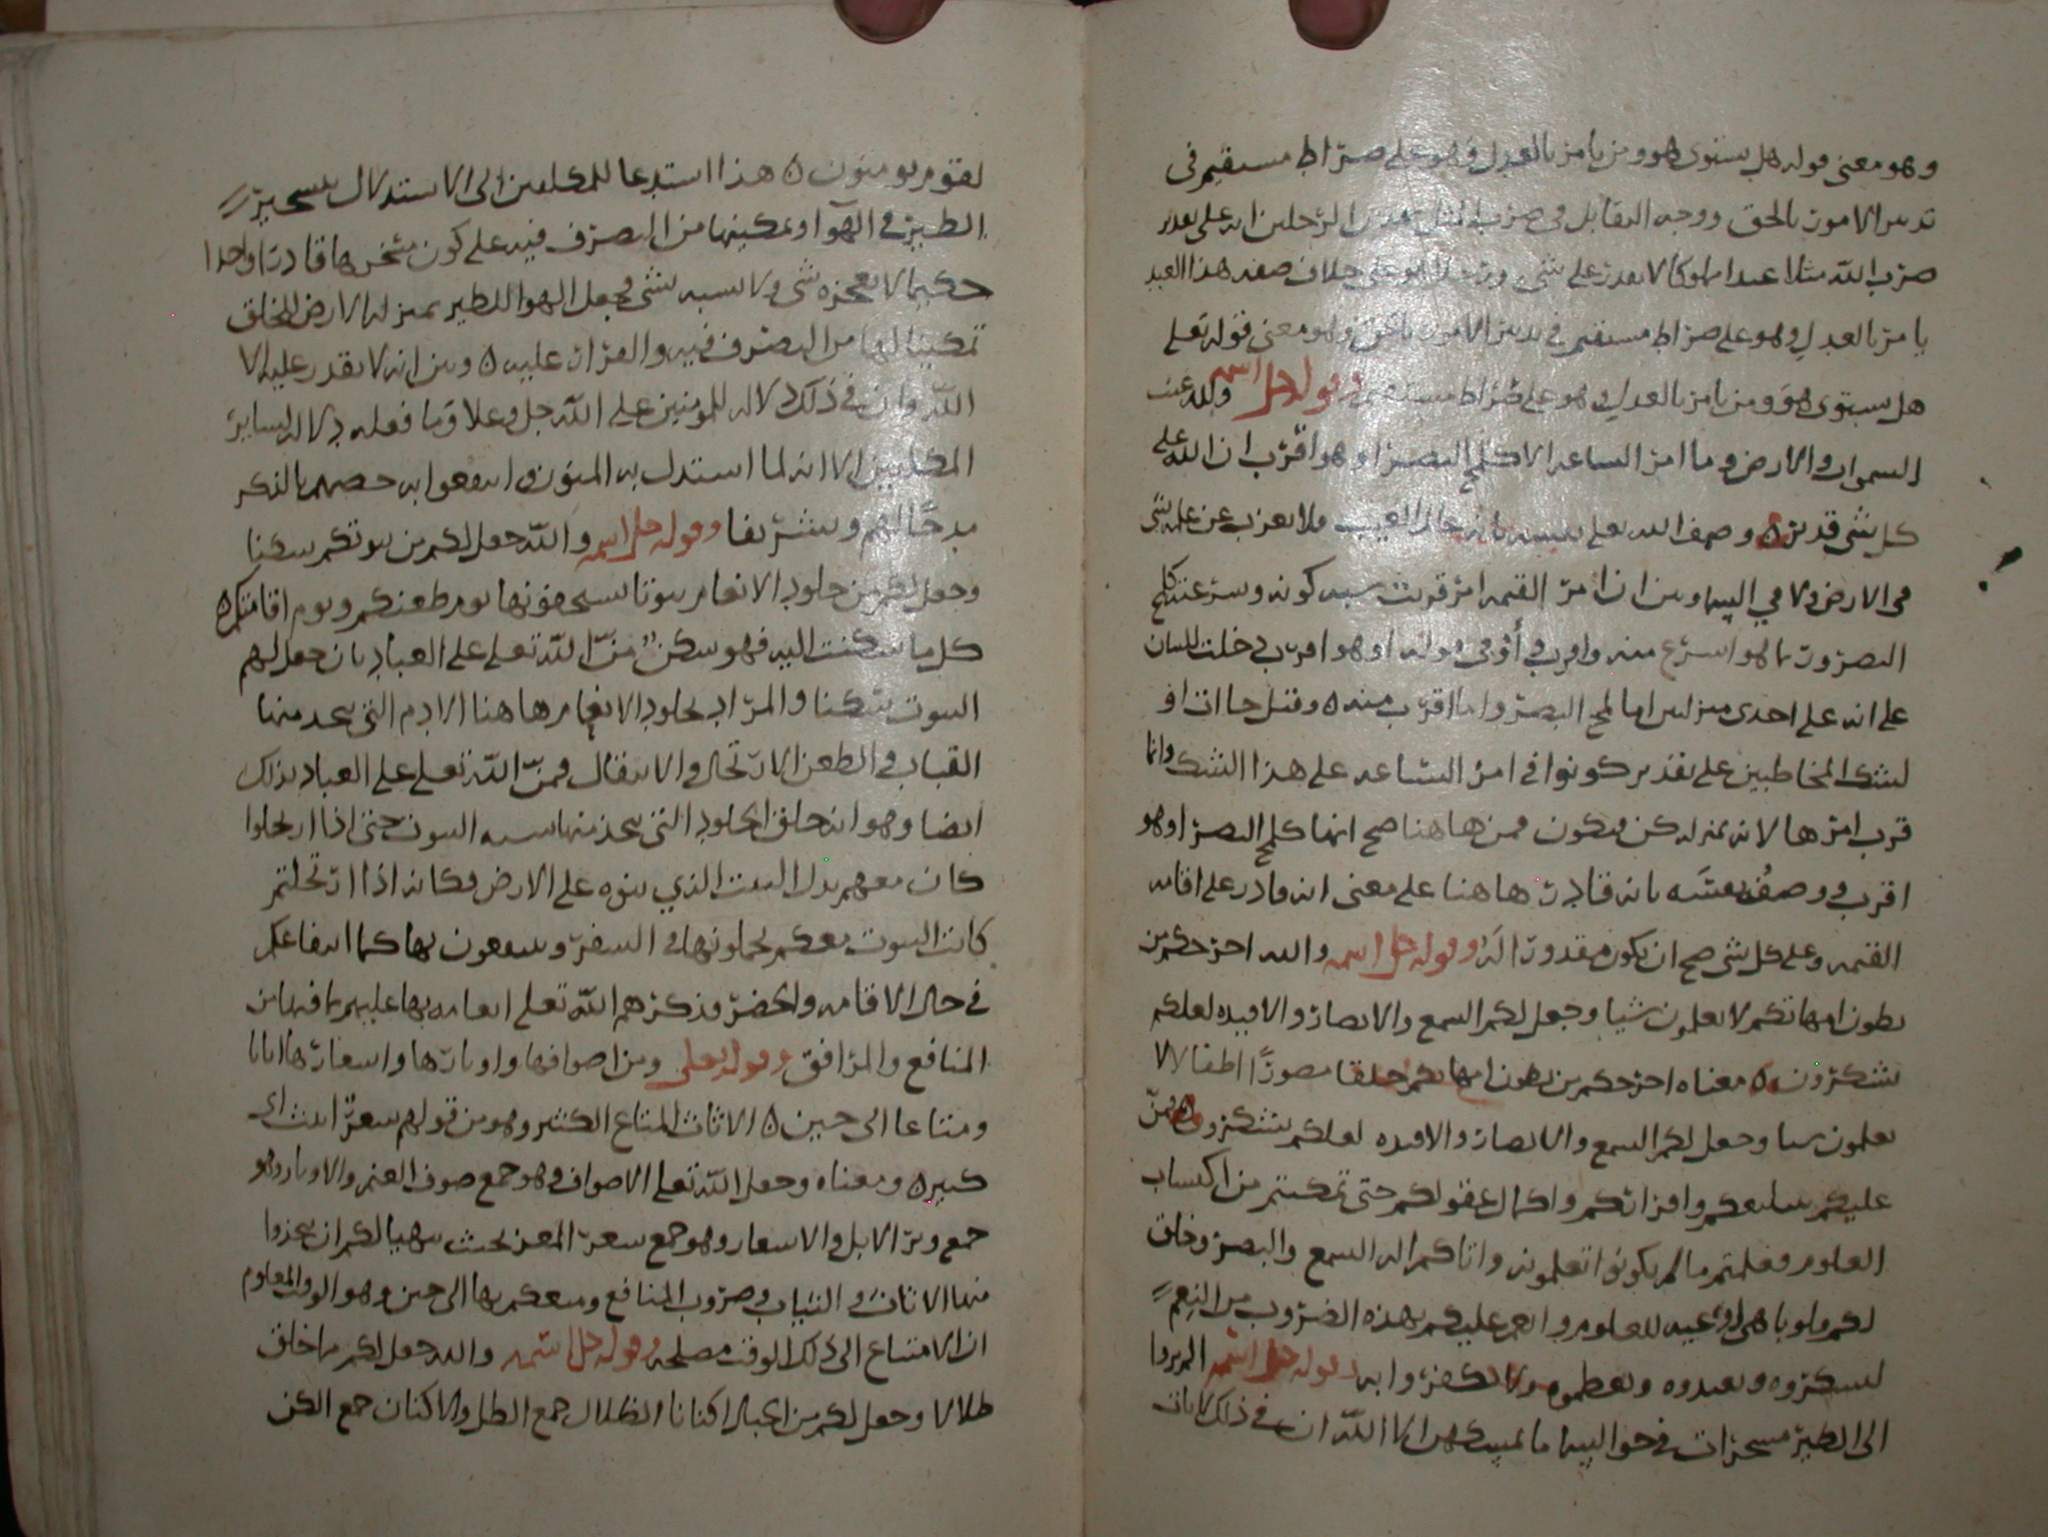 وهو معنى قوله هل يستوى هو ومن يامر بالعدل وهو على صراط مستقيم في
تدبير الامور بالحق ووجه التقابل في ضرب المثل بهذين الرجلين انه على تقدير
ضرب الله مثلا عبدا مملوكا لا يقدر على شي ورجلا هو على خلاف صفه هذا العبد
يامر بالعدل وهو على صراط مستقيم في تدبير الامور بالحق وهو معنى قوله تعلى
هل يستوى هو ومن يامر بالعدل وهو على صراط مستقيم وقوله جل اسمه ولله غيب
السموات والارض وما امر الساعه الا كلمح البصر او هو اقرب ان الله على
كل شي قدير ٥ وصف الله تعلى نفسه بانه عالم الغيب ولا يعزب عن علمه شي
في الارض ولا في السما وبين ان امر القيمه امر قريب كونه وسرعته كلمح
البصر وربما هو اسرع منه واقرب في قوله او هو اقرب دخلت للبيان
على انه على احدى منزلتين اما لمح البصر واما اقرب منه ٥ وقيل جاات او
لشك المخاطبين على تقدير كونوا في امر الساعه على هذا الشك وانما
قرب امرها لانه بمنزله كن فيكون فمن هاهنا صح انها كلمح البصر او هو
اقرب ووصف نفسه بانه قادر هاهنا على معنى انه قادر على اقامه
القيمه وعلى كل شي صح ان يكون مقدورا له وقوله جل اسمه والله اخرجكم من
بطون امهاتكم لا تعلمون شيا وجعل لكم السمع والابصار والافيده لعلكم
تشكرون ٥ معناه اخرجكم من بطون امهاتكم خلقا مصورا اطفالا لا
تعلمون شيا وجعل لكم السمع والابصار والافيده لعلكم تشكرون ٥ فمن
عليكم واكمال عقولكم حتى تمكنتم من اكتساب
العلوم فعلمتم ما لم تكونوا تعلمونه واتاكم اله السمع والبصر وخلق
لكم قلوبا هي اوعيه للعلوم وانعم عليكم بهذه الضروب من النعم
لتشكروه وتعبدوه وتعظموه ولا تكفروا به وقوله جل اسمه الم يروا
الى الطير مسخرات في جو السما ما يمسكهن الا الله ان في ذلك لايات
لقوم يومنون ٥ هذا استدعا للمكلفين الى الاستدلال بتسخير
الطير في الهوا وتمكينها من التصرف فيه على كون مسخرها قادرا واحدا
حكيما لا يعجزه شي ولا يشبه بشي وجعل الهوا للطير بمنزله الارض للخلق
تمكينا لها من التصرف فيه والقرار عليه ٥ وبين انه لا يقدر عليه الا
الله وان في ذلك دلاله للمومنين على الله جل وعلا وما فعله دلاله لساير
المكلفين الا انه لما استدل به المومنون وانتفعوا به خصهم بالذكر
مدحا لهم وتشريفا وقوله جل اسمه والله جعل لكم من بيوتكم سكنا
وجعل لكم من جلود الانعام بيوتا تستخفونها يوم ظعنكم ويوم اقامتكم ٥
كل ما سكنت اليه فهو سكن منّ الله تعلى على العباد بان جعل لهم
البيوت سكنا والمراد بجلود الانعام هاهنا الادم التي يتخذ منها
القباب والظعن الارتحال والانتقال فمنّ الله تعلى على العباد بذلك
ايضا وهو انه خلق الجلود التي يتخذ منها شبه البيوت حتى اذا ارتحلوا
كان معهم بدل البيت الذي بنوه على الارض فكانه اذا ارتحلتم
كانت البيوت معكم تحملونها في السفر وتنتفعون بها كما انتفاعكم
في حال الاقامه والحضر فذكرهم الله تعلى انعامه بها عليهم بما فيها من
المنافع والمرافق وقوله تعلى ومن اصوافها واوبارها واشعارها اثاثا
ومتاعا الى حين ٥ الاثاث المتاع الكثير وهو من قولهم شعر اثيث اي
كثير ٥ ومعناه وجعل الله تعلى الاصواف وهو جمع صوف الغنم والاوبار وهو
جمع وبر الابل والاشعار وهو جمع شعر المعز بحيث يتهيا لكم ان تتخذوا
منها الاثاث والثياب وضروب المنافع ومتعكم بها الى حين وهو الوقت المعلوم
ان الامتاع الى ذلك الوقت مصلحه وقوله جل اسمه والله جعل لكم مما خلق
ظلالا وجعل لكم من الجبال اكنانا الظلال جمع الظل والاكنان جمع الكن